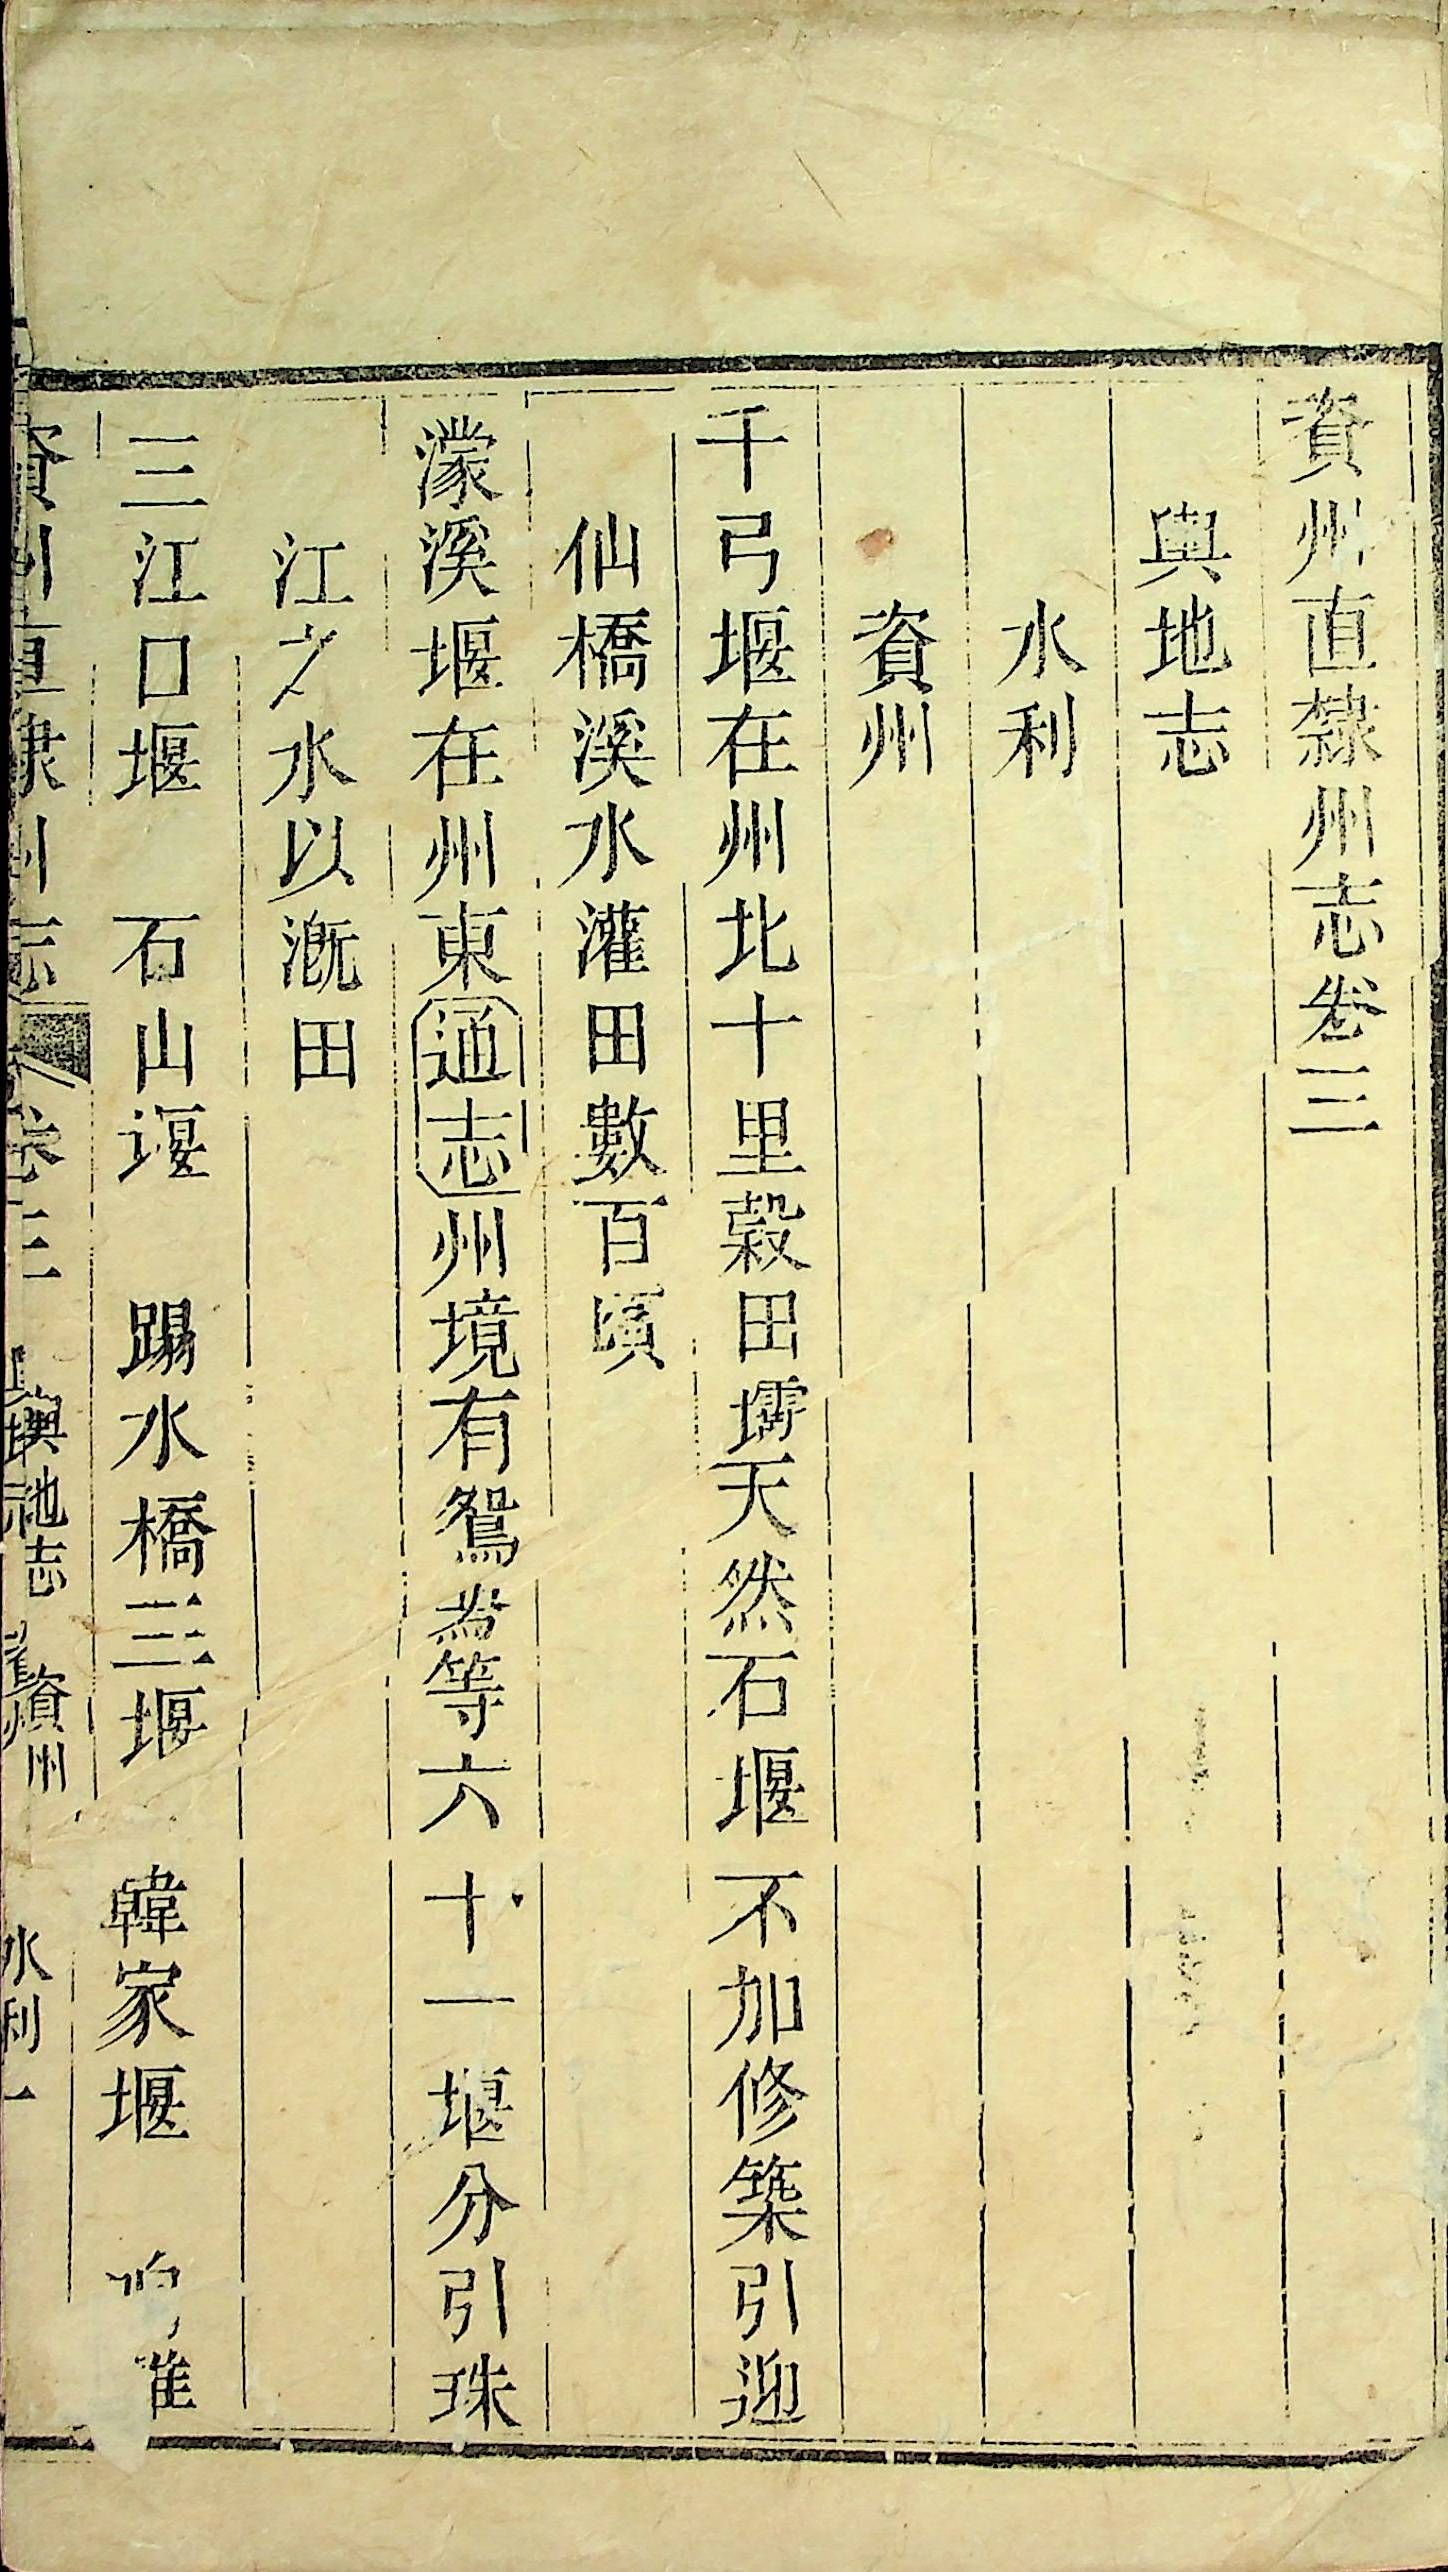 資州直隸州志卷三
輿地志
水利
資州
千弓堰在州北十里穀田壩天然石堰不加修築引迎
仙橋溪水灌田數百頃
濛溪堰在州東通志州境有鴛鴦等六十一堰分引珠
江之水以溉田
三江口堰 石山堰 踢水橋三堰 韓家堰
資州直隸州志 卷三 輿地志 資州 水利 一